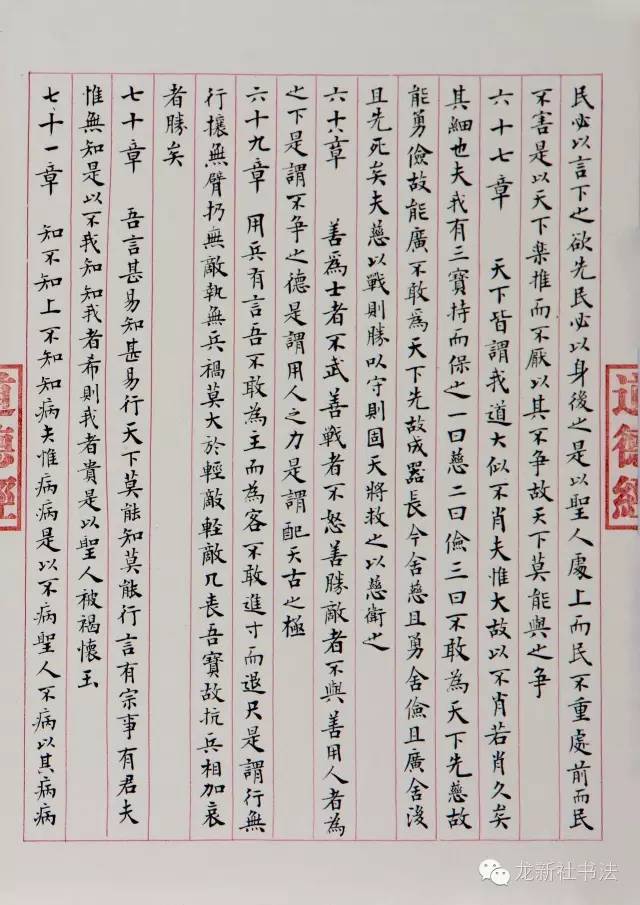 民必以言下之欲先民必以身後之是以聖人處上而民不重處前而民
不害是以天下樂推而不厭以其不争故天下莫能與之争
六十七章 天下皆謂我道大似不肖夫惟大故以不肖若肖久矣
其細也夫我有三寶持而保之一曰慈二曰儉三曰不敢為天下先慈故
能勇儉故能廣不敢爲天下先故成器長今舍慈且勇舍儉且廣舍後
且先死矣夫慈以戰則勝以守則固天將救之以慈衛之
六十八章 善爲士者不武善戰者不怒善勝敵者不與善用人者為
之下是謂不争之德是謂用人之力是謂配天古之極
六十九章 用兵有言吾不敢為主而為客不敢進寸而退尺是謂行無
行攘無臂扔無敵執無兵禍莫大於輕敵輕敵几喪吾寶故抗兵相加哀
者勝矣
七十章 吾言甚易知甚易行天下莫能知莫能行言有宗事有君夫
惟無知是以不我知知我者希則我者貴是以聖人被褐懷玉
七十一章 知不知上不知知病夫惟病病是以不病聖人不病以其病病
道德經
道德經
龙新社书法